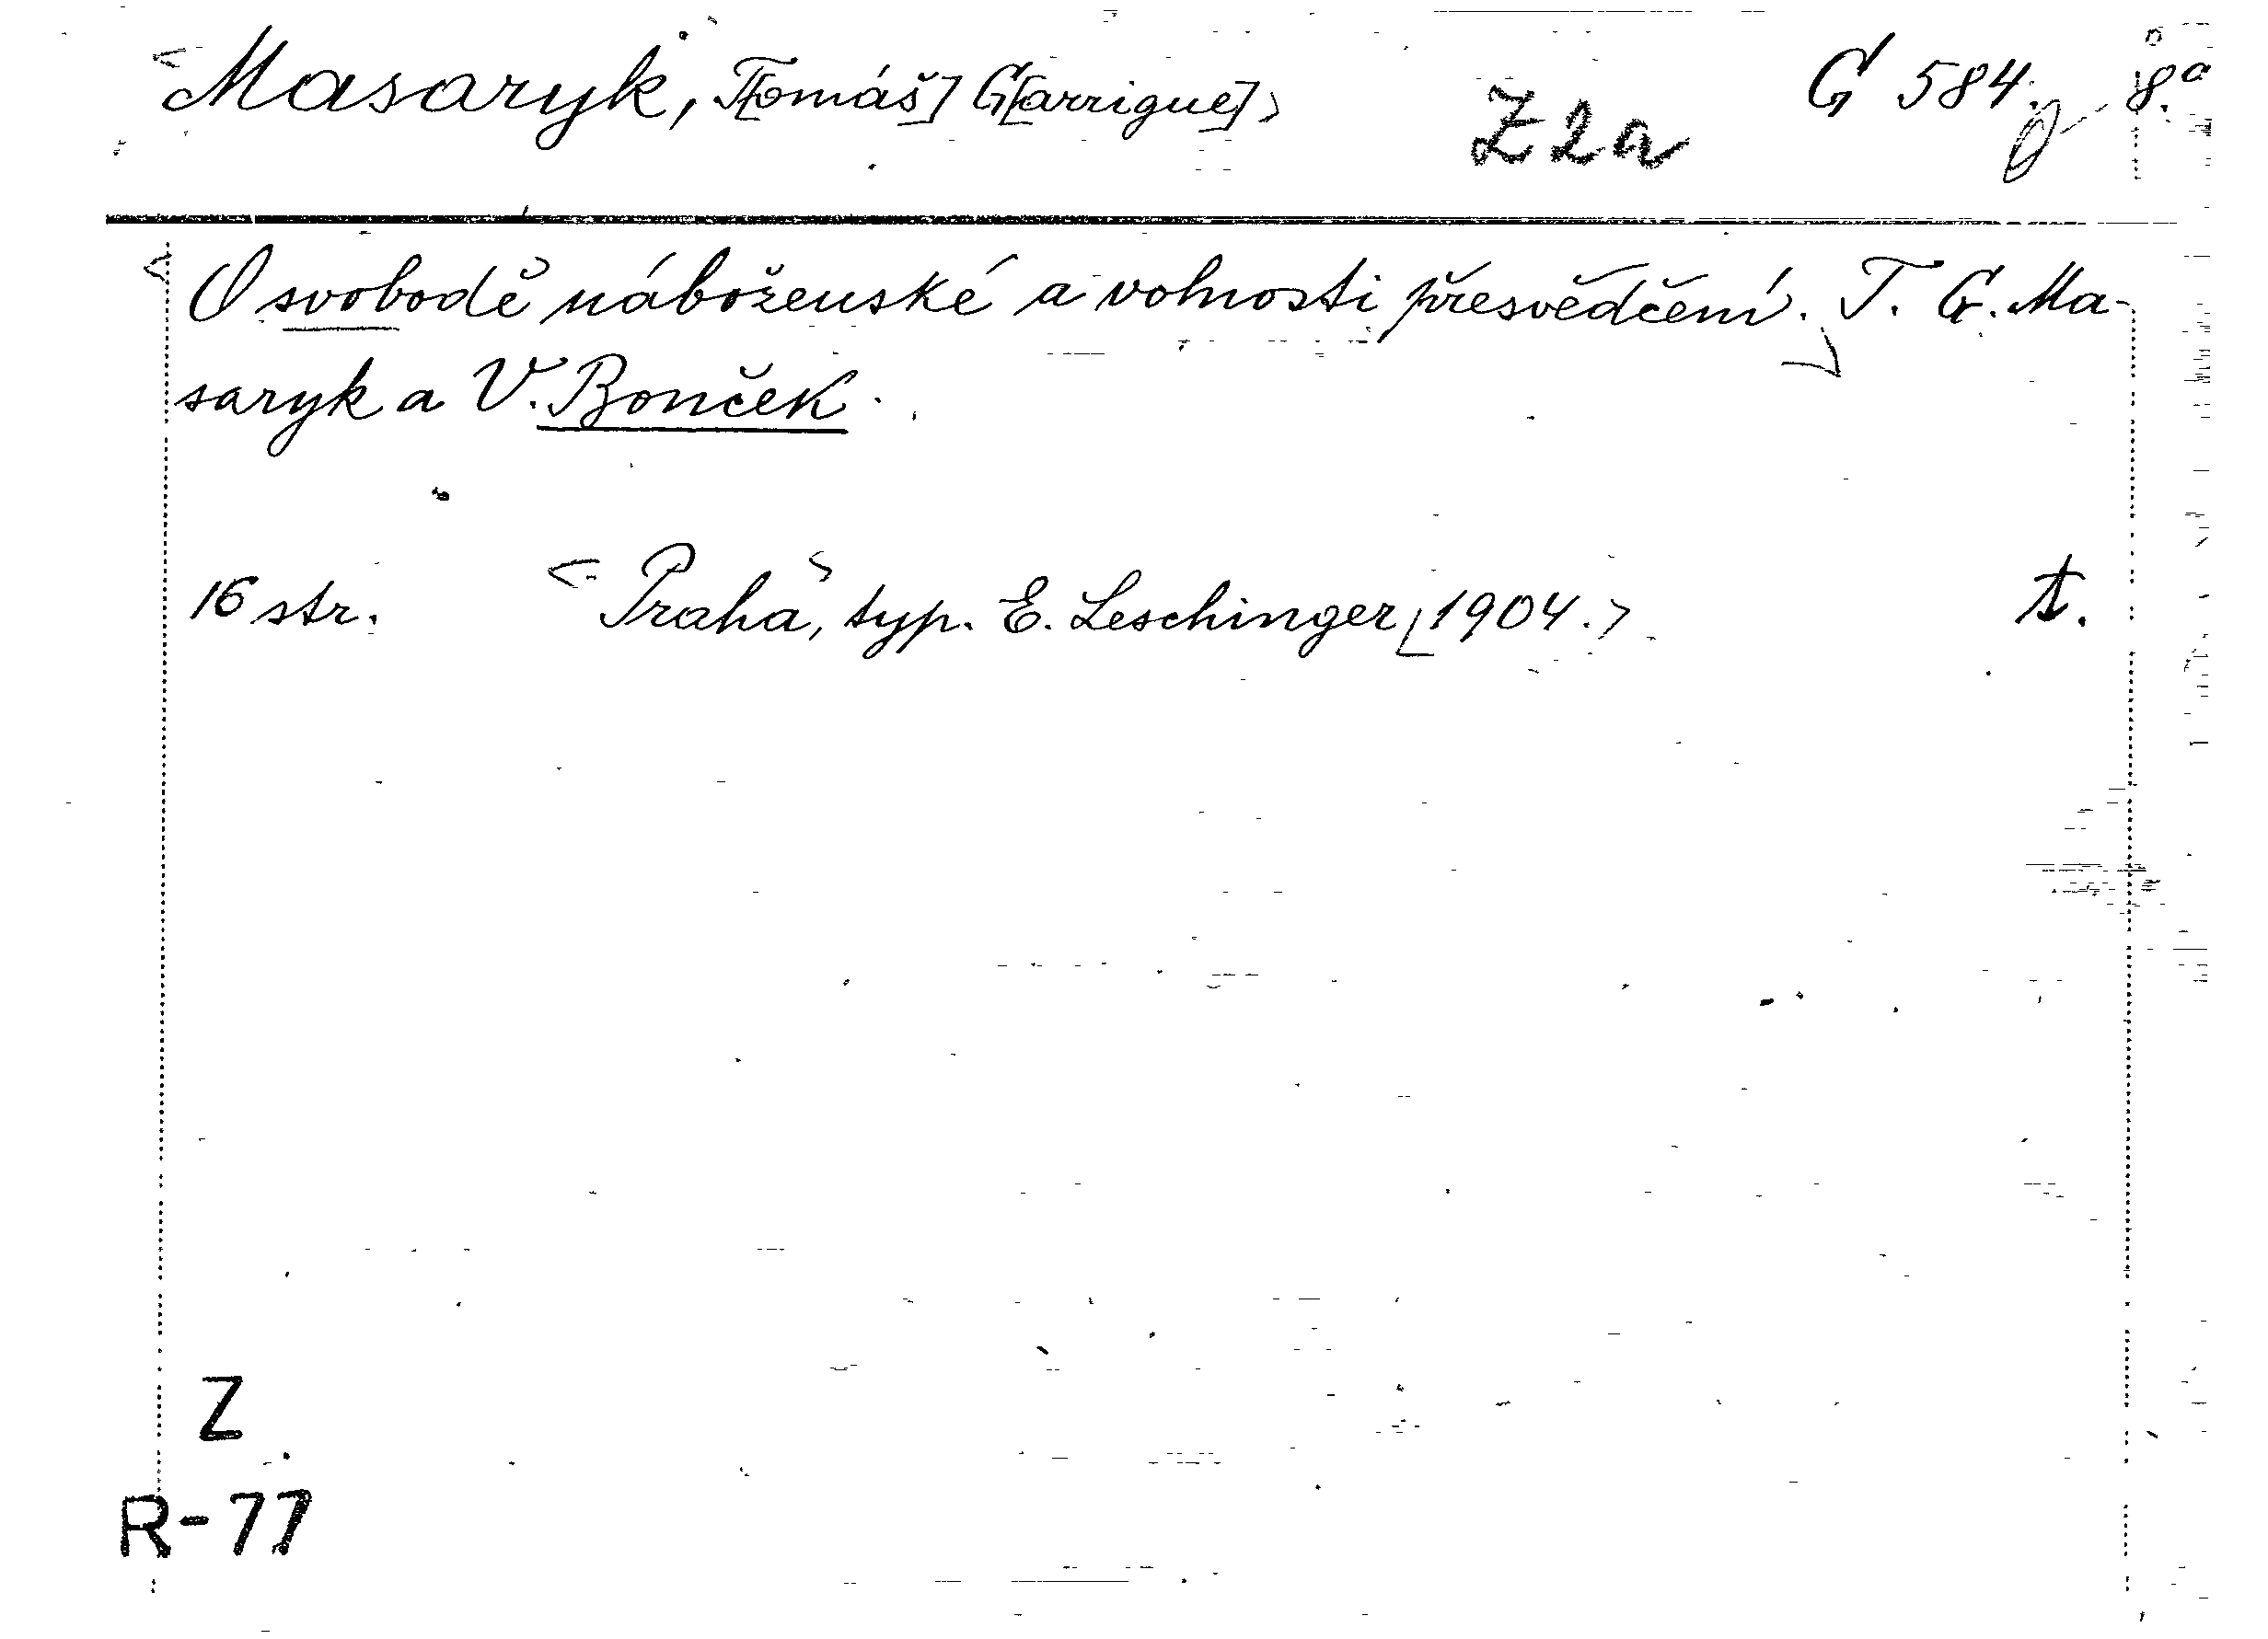 <Masaryk, T[omáš] G[arrigue]> Z2a G 584. 8.°
<O svobodě náboženské a volnosti přesvědčení.> T. G. Ma-
saryk a V. Bonček.
16 str. <Praha>, typ. E. Leschinger [1904.> t.
Z
R-77